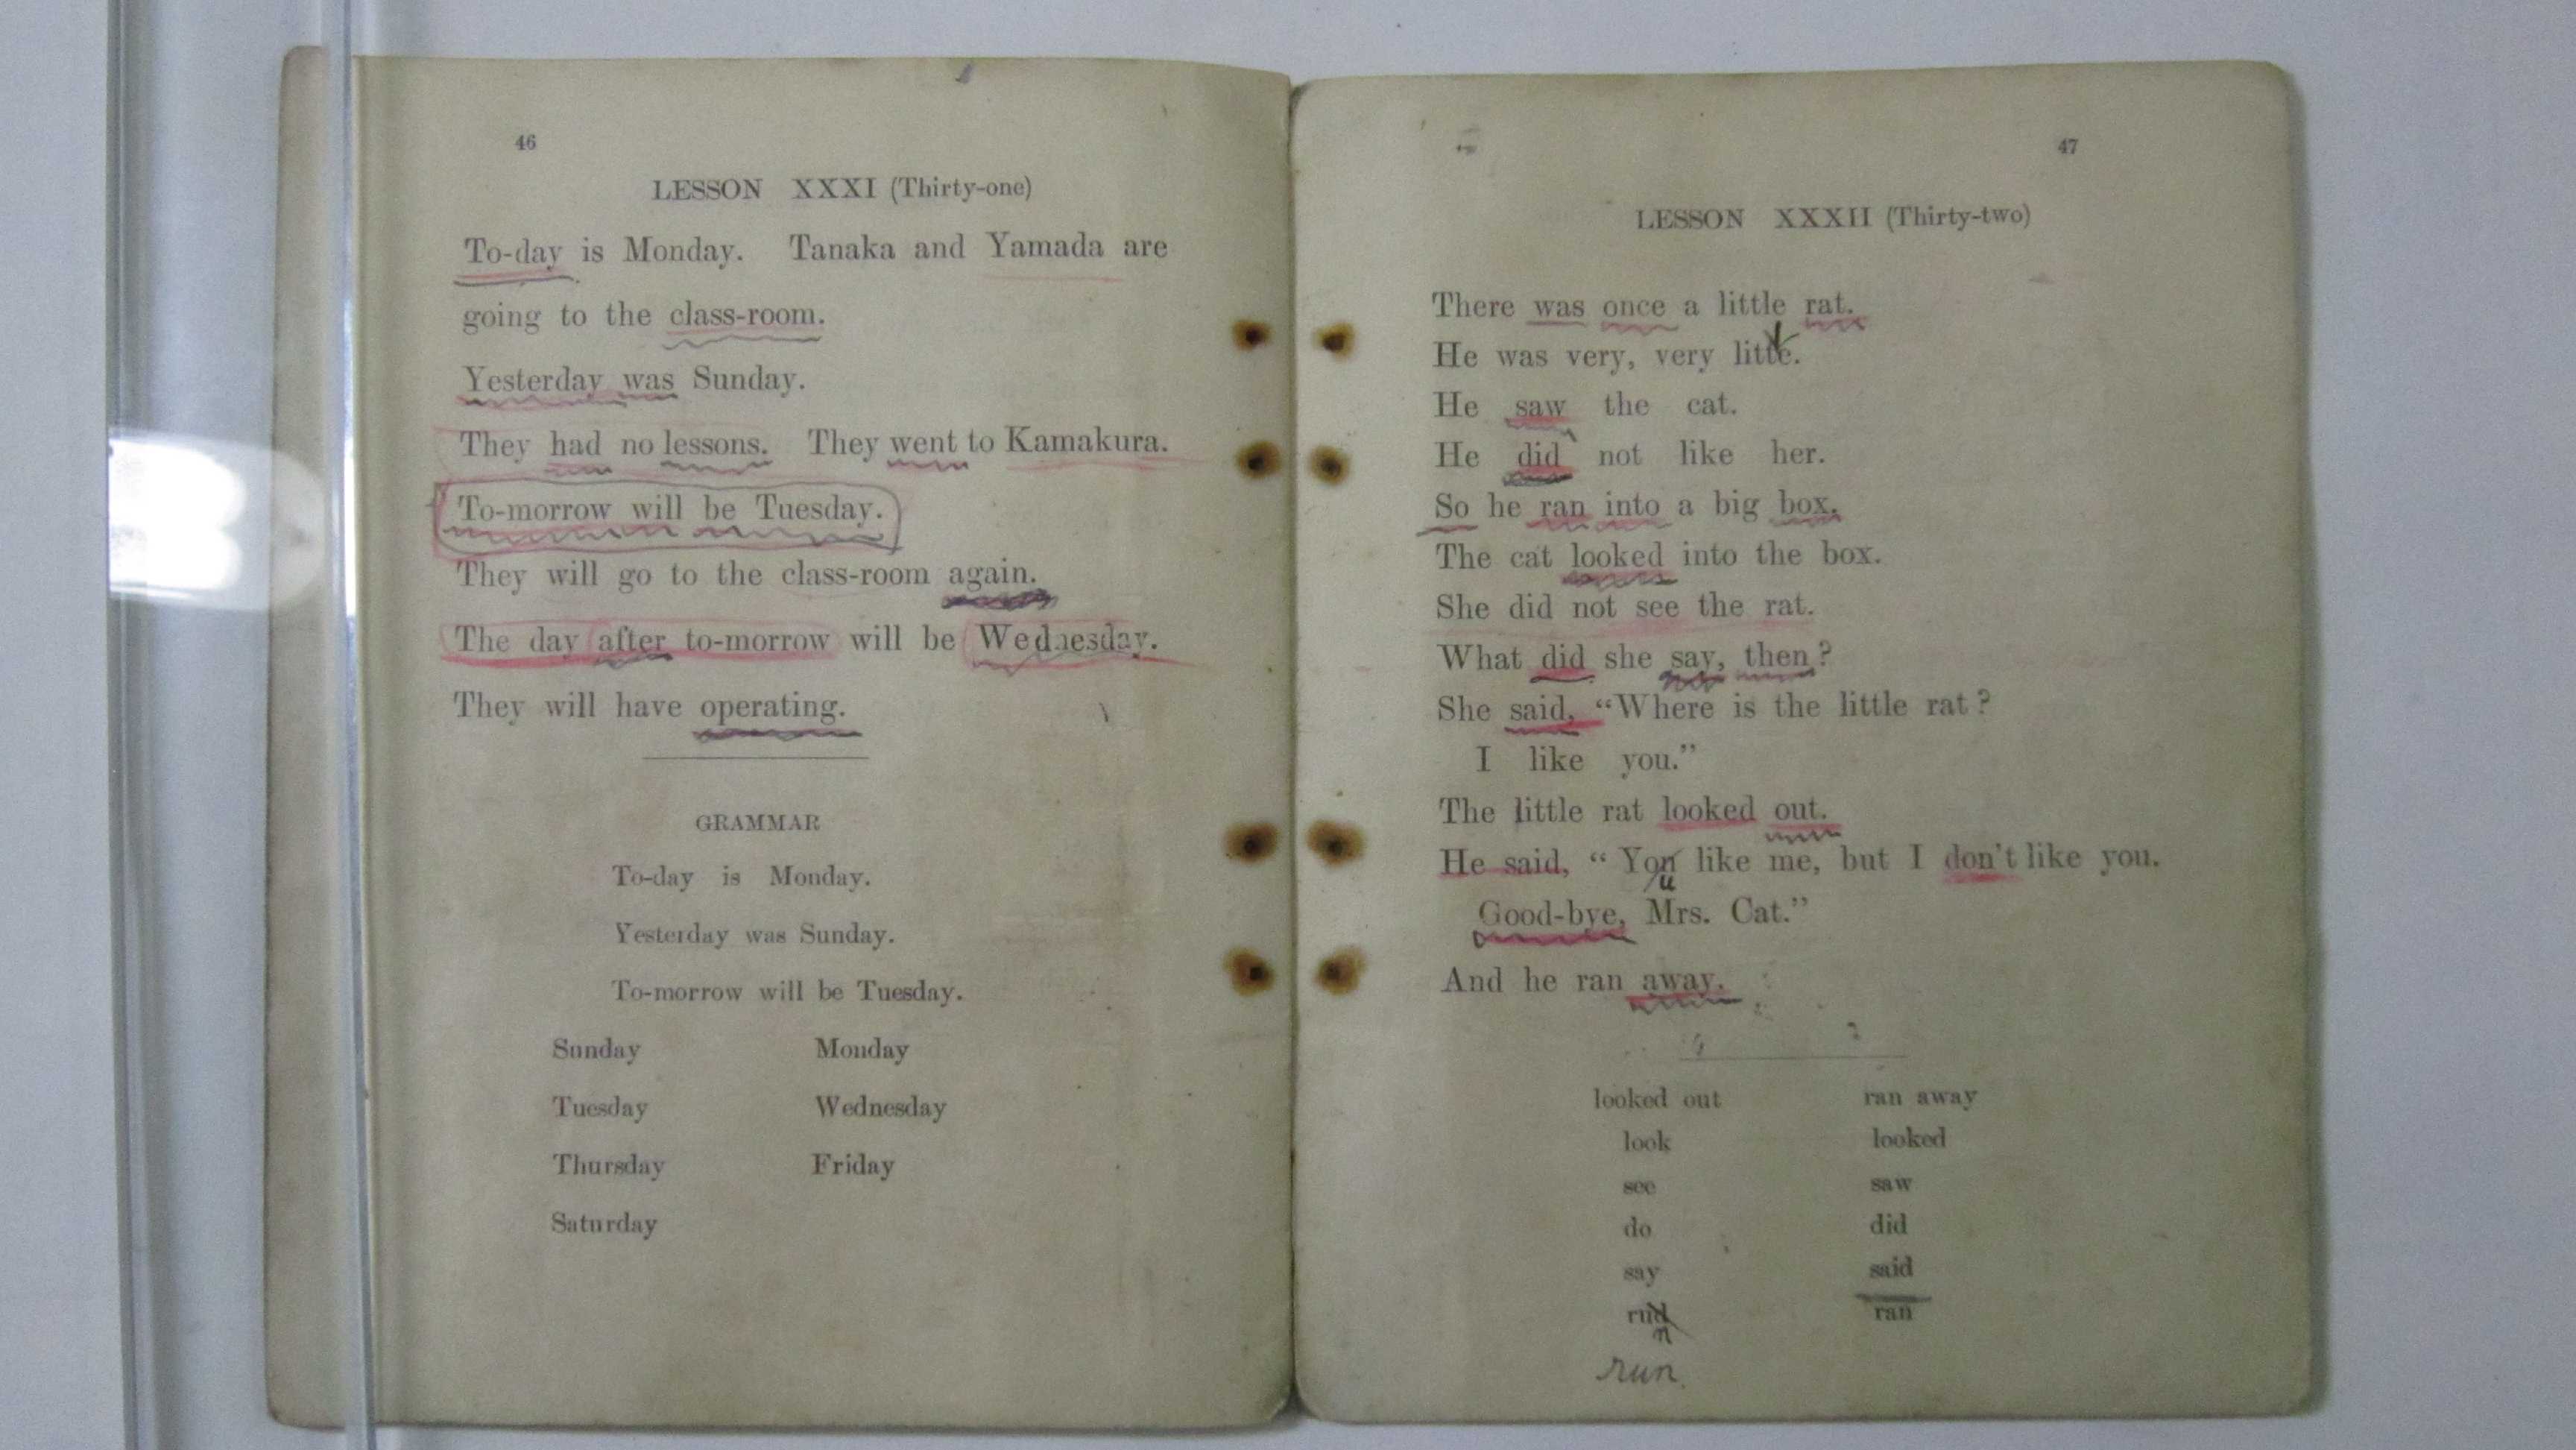 46
LESSON XXXI (Thirty-one)
To-day is Monday. Tanaka and Yamada are
going to the class-room.
Yesterday was Sunday.
They had no lessons. They went to Kamakura.
To-morrow will be Tuesday.
They will go to the class-room again.
The day after to-morrow will be Wednesday.
They will have operating.
GRAMMAR
To-day is Monday.
Yesterday was Sunday.
To-morrow will be Tuesday.
Sunday Monday
Tuesday Wednesday
Thursday Friday
Saturday
47
LESSON XXXII (Thirty-two)
There was once a little rat.
He was very, very litte.
He saw the cat.
He did not like her.
So he ran into a big box.
The cat looked into the box.
She did not see the rat.
What did she say, then?
She said, “Where is the little rat?
I like you.”
The little rat looked out.
He said, “ Yon like me, but I don't like you.
u
Good-bye, Mrs. Cat.”
And he ran away.
looked out ran away
look looked
see saw
do did
say said
ran
n
run